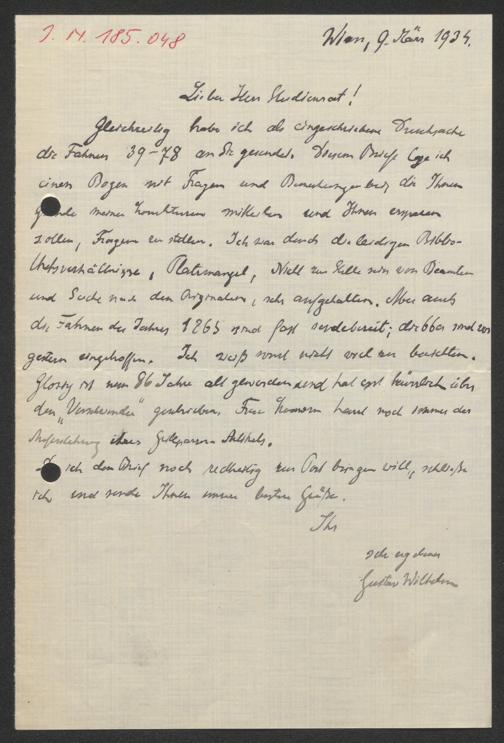 I. N. 185.048
Wien, 9. März 1934.
Lieber Herr Studienrat!
Gleichzeitig habe ich als eingeschriebene Drucksache
die Fahnen 39–78 an Sie gesendet. Diesem Briefe lege ich
einen Bogen mit Fragen und Bemerkungen bei, die Ihnen
Gründe meiner Korrekturen mitteilen und Ihnen ersparen
sollen, Fragen zu stellen. Ich war durch die leidigen Biblio-
theksverhältnisse, Platzmangel, Nicht zur Stelle sein von Beamten
und Suche nach den Originalen, sehr aufgehalten. Aber auch
die Fahnen des Jahres 1865 sind fast sendebereit; die 66er sind
gestern eingetroffen. Ich weiß sonst nicht viel zu berichten.
Glossy ist nun 86 Jahre alt geworden und hat erst kürzlich über
den "Verschwender" geschrieben. Frau harrt noch immer der
Auferstehung ihres Artikels.
Da ich den Brief noch rechtzeitig zur Post bringen will, schließe
ich und sende Ihnen unsere besten Grüße.
Ihr
sehr ergebener
Gustav Wilhelm